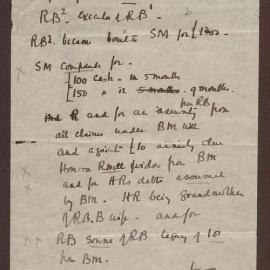 RB². Executor of RB¹.
RB². became bound to SM for £1200.
SM compounds for -
£100 cash in 5 months
£150 " in 5 months. 9 months.
from RB
and for an indemnity from
all claims under BM will
and against £10 annuity due
Honora widow from BM
and for HRs debts assumed
by BM. HR being Grandmother
of RB. B wife. and for
RB of RB legacy of 100
from BM.